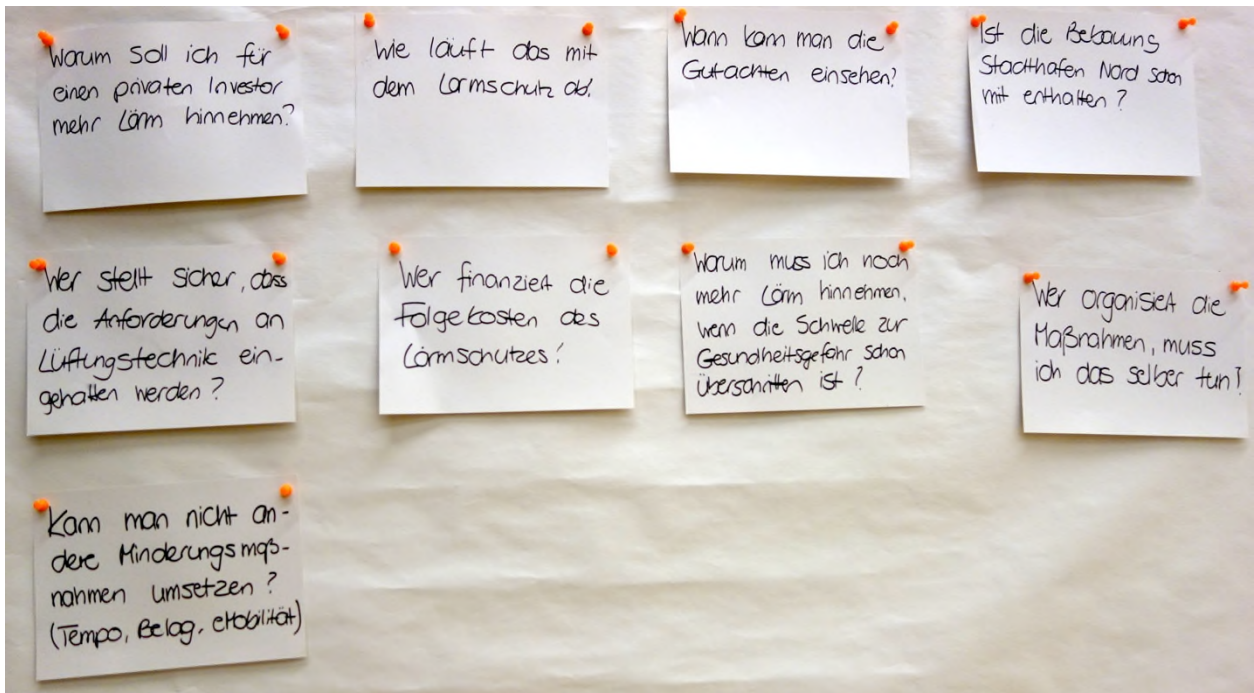 Warum soll ich für
einen privaten Investor
mehr Lärm hinnehmen?
Wie läuft das mit
dem Lärmschutz ab?
Wann kann man die
Gutachten einsehen?
Ist die Bebauung
Stadthafen Nord schon
mit enthalten?
Wer stellt sicher, dass
die Anforderungen an
Lüftungstechnik ein-
gehalten werden?
Wer finanziert die
Folgekosten des
Lärmschutzes?
Warum muss ich noch
mehr Lärm hinnehmen,
wenn die Schwelle zur
Gesundheitsgefahr schon
überschritten ist?
Wer organisiert die
Maßnahmen, muss
ich das selber tun?
Kann man nicht an-
dere Minderungsmaß-
nahmen umsetzen?
(Tempo, Belag, eMobilität)